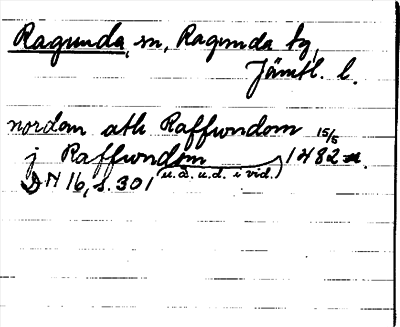 Ragunda, sn, Ragunda tg,
Jämtl. l.
nordom ath Raffwndom 15/5
j Raffwndom 1482.
DN 16, s. 301 (u.d. u.d. i vid.)